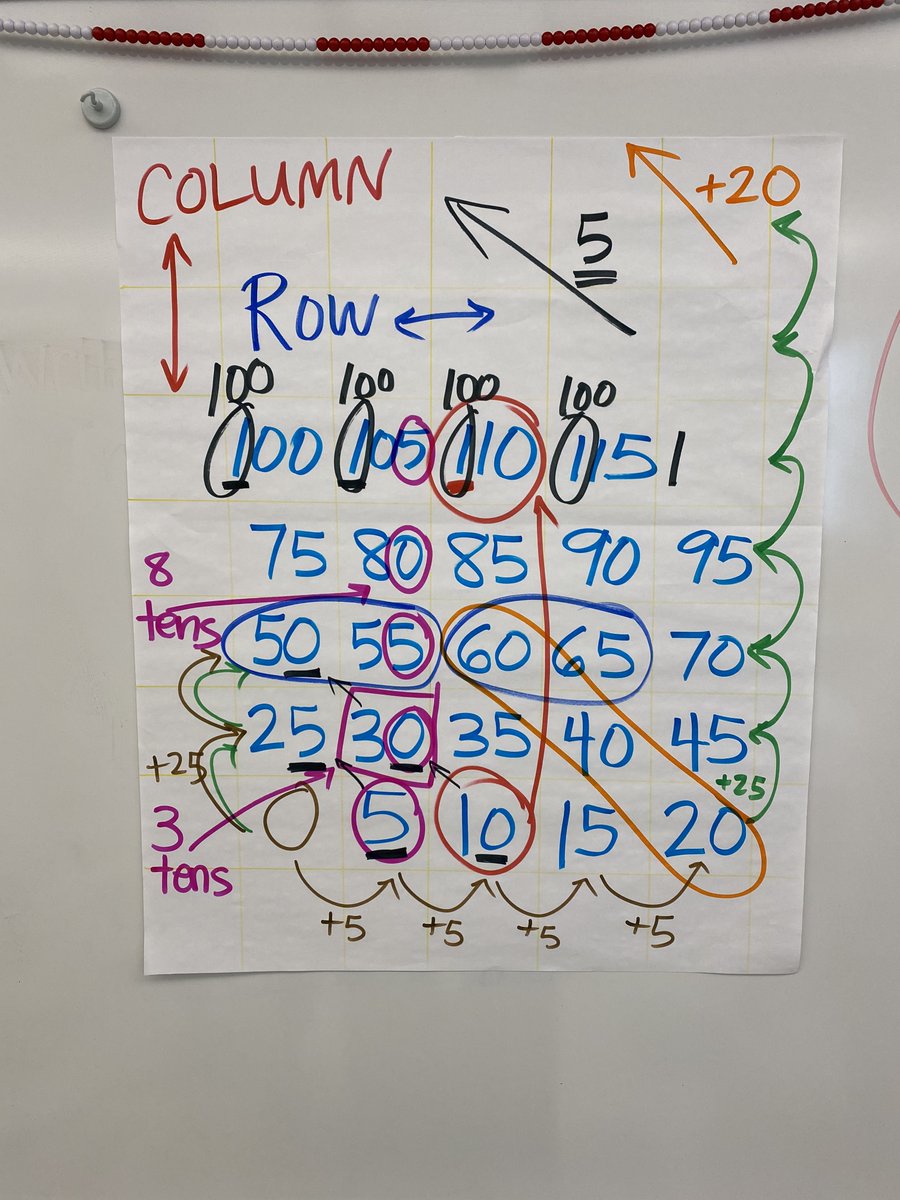 COLUMN
+20
5
Row
100 100 100 100
100 105 110 115 1
75 80 85 90 95
8
tens
50 55 60 65 70
25 30 35 40 45
+25
+25
3
tens
0 5 10 15 20
+5 +5 +5 +5